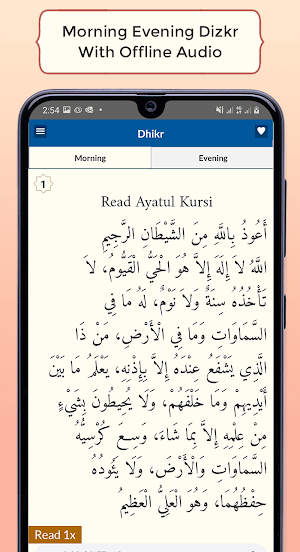 Morning Evening Dizkr
With Offline Audio
2:54
Dhikr
Morning Evening
1
Read Ayatul Kursi
أَعُوذُ بِاللَّهِ مِنَ الشَّيْطَانِ الرَّجِيمِ
اللَّهُ لاَ إِلَهَ إِلاَّ هُوَ الْحَيُّ الْقَيُّومُ، لاَ
تَأْخُذُهُ سِنَةٌ وَلاَ نَوْمٌ، لَهُ مَا فِي
السَّمَاوَاتِ وَمَا فِي الْأَرْضِ، مَنْ ذَا
الَّذِي يَشْفَعُ عِنْدَهُ إِلاَّ بِإِذْنِهِ، يَعْلَمُ مَا بَيْنَ
أَيْدِيهِمْ وَمَا خَلْفَهُمْ، وَلاَ يُحِيطُونَ بِشَيْءٍ
مِنْ عِلْمِهِ إِلاَّ بِمَا شَاءَ، وَسِعَ كُرْسِيُّهُ
السَّمَاوَاتِ وَالْأَرْضَ، وَلاَ يَئُودُهُ
حِفْظُهُمَا، وَهُوَ الْعَلِيُّ الْعَظِيمُ
Read 1x